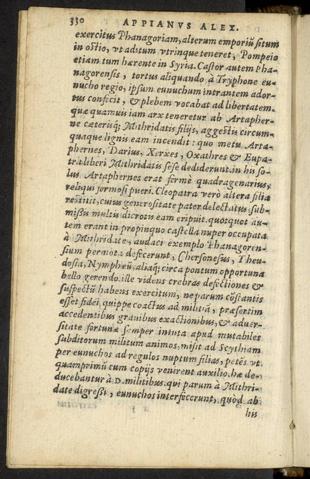 330 APPIANVS ALEX.
exercitus Phanagoriam, alterum emporiū situm
in ostio, vt aditum vtrinque teneret, Pompeio
etiam tum hærente in Syria. Castor autem Pha-
nagorensis, tortus aliquando à Tryphone eu-
nucho regio, ipsum eunuchum intrantem ador-
tus confecit, & plebem vocabat ad libertatem.
quæ quamuis iam arx teneretur ab Artapher-
ne cæterisq; Mithridatis filijs, aggestis circum-
quaque lignis eam incendit: quo metu Arta-
phernes, Darius, Xerxes, Oxathres & Eupa-
tra liberi Mithridatis sese dediderunt. in his so-
lus Artaphernes erat fermè quadragenarius,
reliqui formosi pueri. Cleopatra verò altera filia
restitit, cuius generositate pater delectatus sub-
mißis multis dicrotis eam eripuit. quotquot au-
tem erant in propinquo castella nuper occupata
à Mithridate, audaci exemplo Phanagoren-
sium permota defecerunt, Chersonesus, Theu-
dosia, Nymphæū, aliaq; circa pontum opportuna
bello gerendo. ille videns crebras defectiones &
suspectū habens exercitum, ne parum cōstantis
esset fidei, quippe coactus ad militiā, præsertim
accedentibus grauibus exactionibus, & aduer-
sitate fortunæ semper inuisa apud mutabiles
subditorum militum animos, misit ad Scythiam
per eunuchos ad regulos nuptum filias, petēs vt
quamprimū cum copijs venirent auxilio. hæ de-
ducebantur à D. militibus. qui parum à Mithri-
date digreßi, eunuchos interfecerunt, quòd ab
his